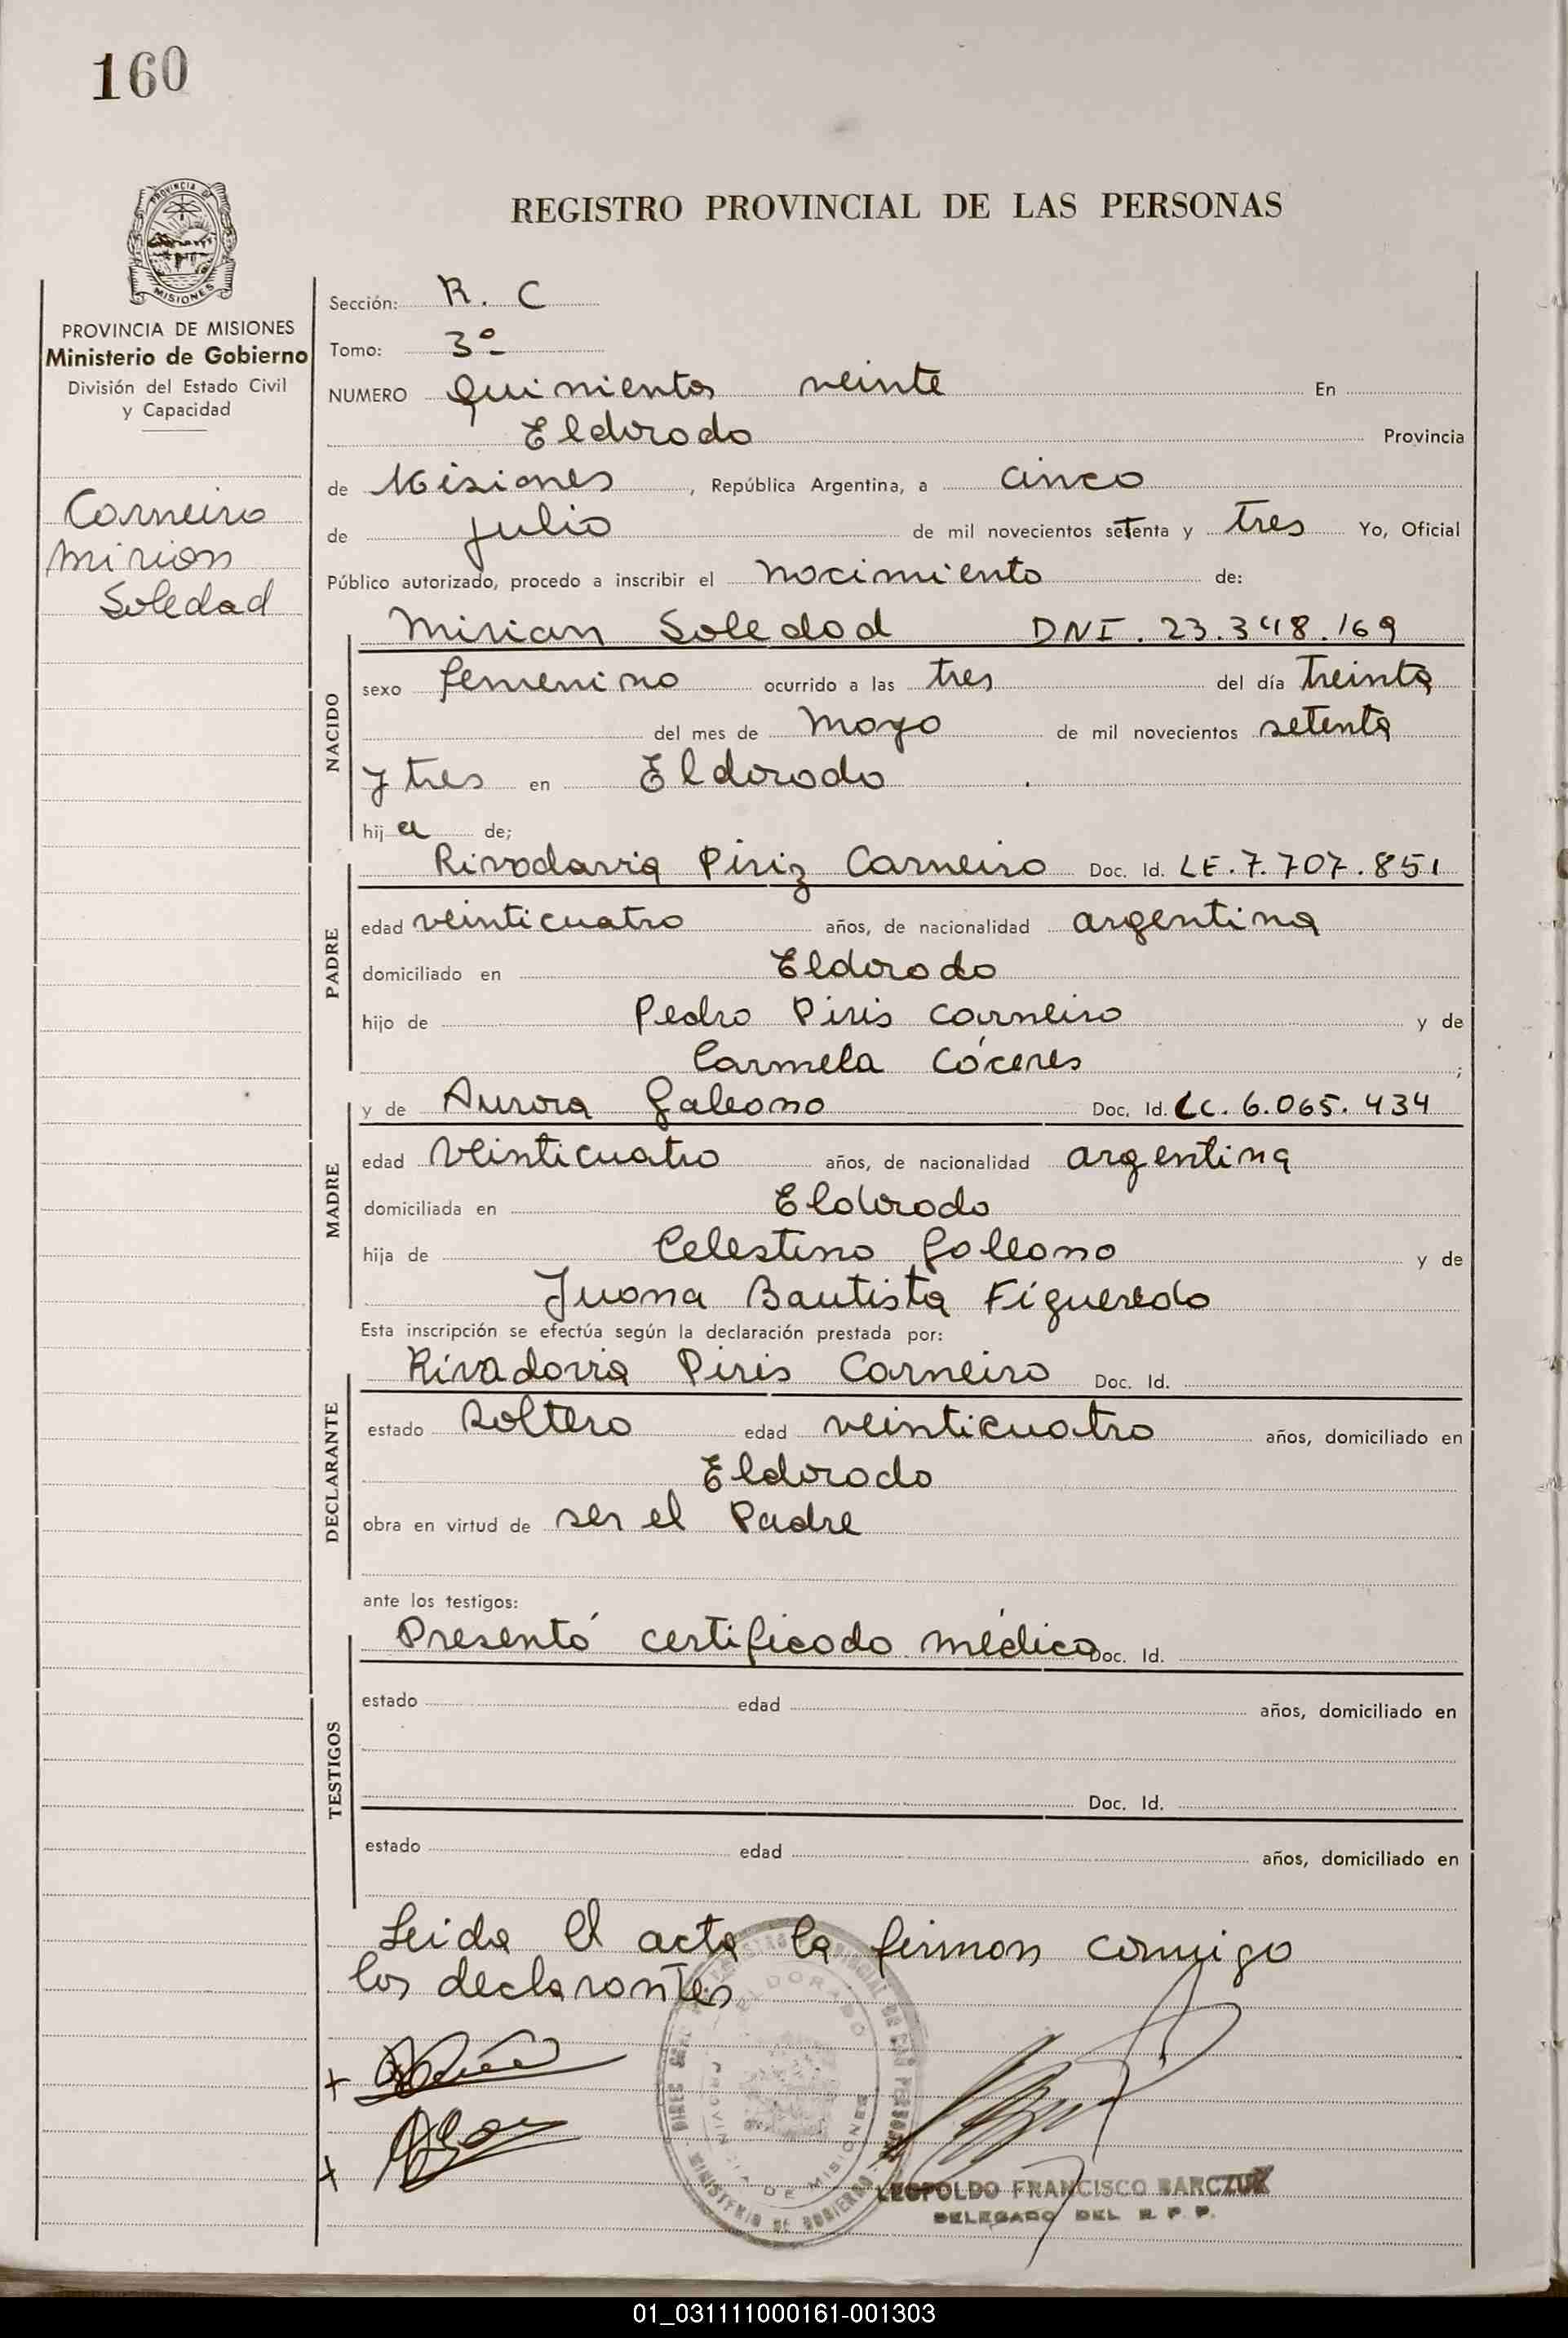 160
PROVINCIA DE
MISIONES
REGISTRO PROVINCIAL DE LAS PERSONAS
PROVINCIA DE MISIONES
Ministerio de Gobierno
División del Estado Civil
y Capacidad
Carneiro
Mirian
Soledad
Sección: R. C
Tomo: 3º
NUMERO quinientos veinte En
Eldorado Provincia
de Misiones, República Argentina, a cinco
de julio de mil novecientos setenta y tres Yo, Oficial
Público autorizado, procedo a inscribir el nacimiento de:
NACIDO
Mirian Soledad DNI. 23.348.169
sexo femenino ocurrido a las tres del día treinta
del mes de mayo de mil novecientos setenta
y tres en Eldorado
hija de;
PADRE
Rivadavia Piriz Carneiro Doc. Id. LE. 7.707.851
edad veinticuatro años, de nacionalidad argentina
domiciliado en Eldorado
hijo de Pedro Piris Carneiro y de
Carmela Cáceres ;
MADRE
y de Aurora Galeano Doc. Id. LC. 6.065.434
edad veinticuatro años, de nacionalidad argentina
domiciliada en Eldorado
hija de Celestino Galeano y de
Juana Bautista Figueredo
Esta inscripción se efectúa según la declaración prestada por:
DECLARANTE
Rivadavia Piris Carneiro Doc. Id.
estado soltero edad veinticuatro años, domiciliado en
Eldorado
obra en virtud de ser el Padre
ante los testigos:
TESTIGOS
Presentó certificado médico Doc. Id.
estado edad años, domiciliado en
Doc. Id.
estado edad años, domiciliado en
Leida el acta la firman conmigo
los declarantes
ELDORADO
PROVINCIA DE MISIONES
MINISTERIO DE GOBIERNO
LEOPOLDO FRANCISCO BARCZUK
DELEGADO DEL R. P. P.
01_031111000161-001303